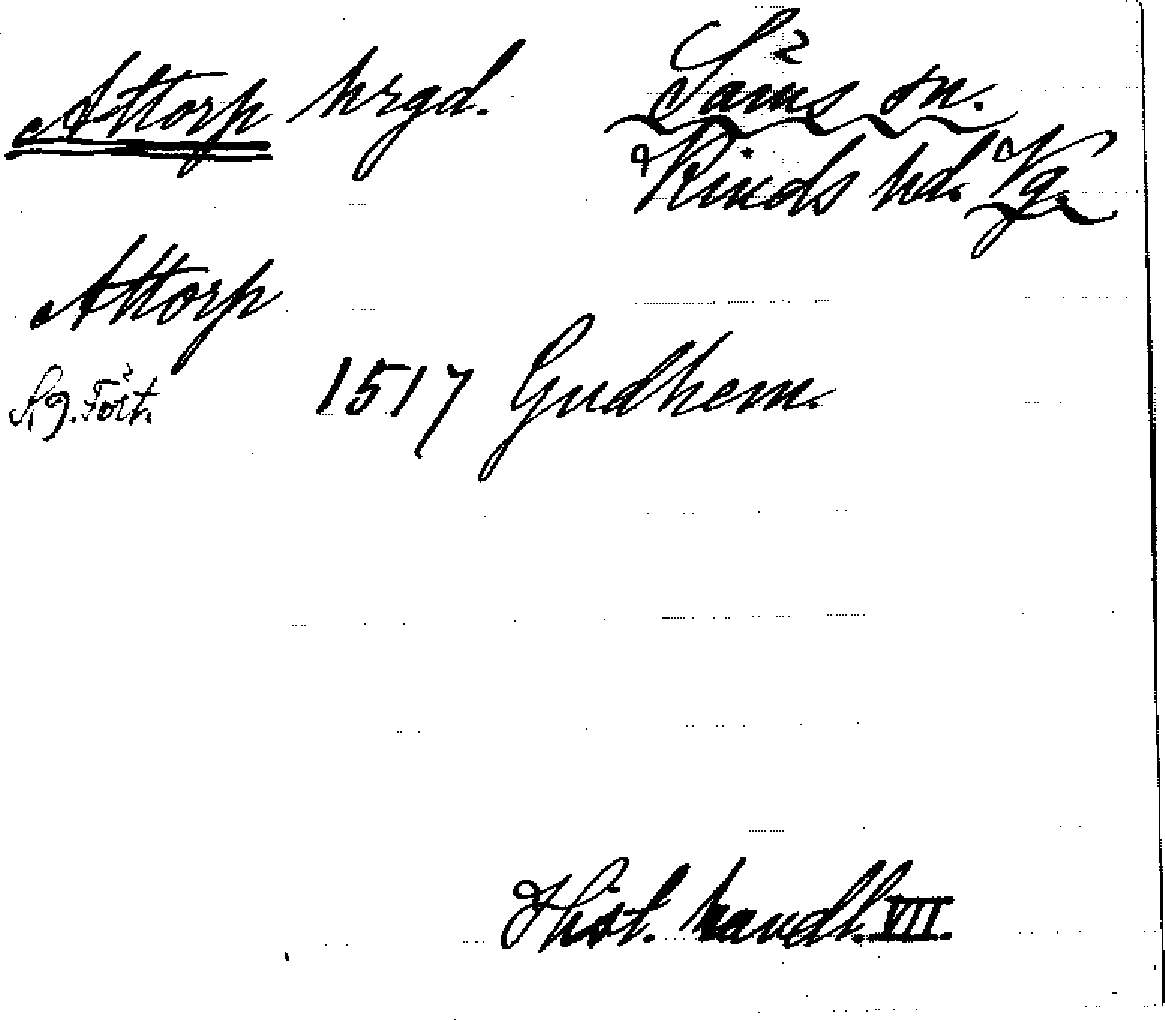 Attorp hrgd. Såms sn.
Kinds hd. Vg.
Attorp
1517 Gudhem.
Hist. handl. VII.